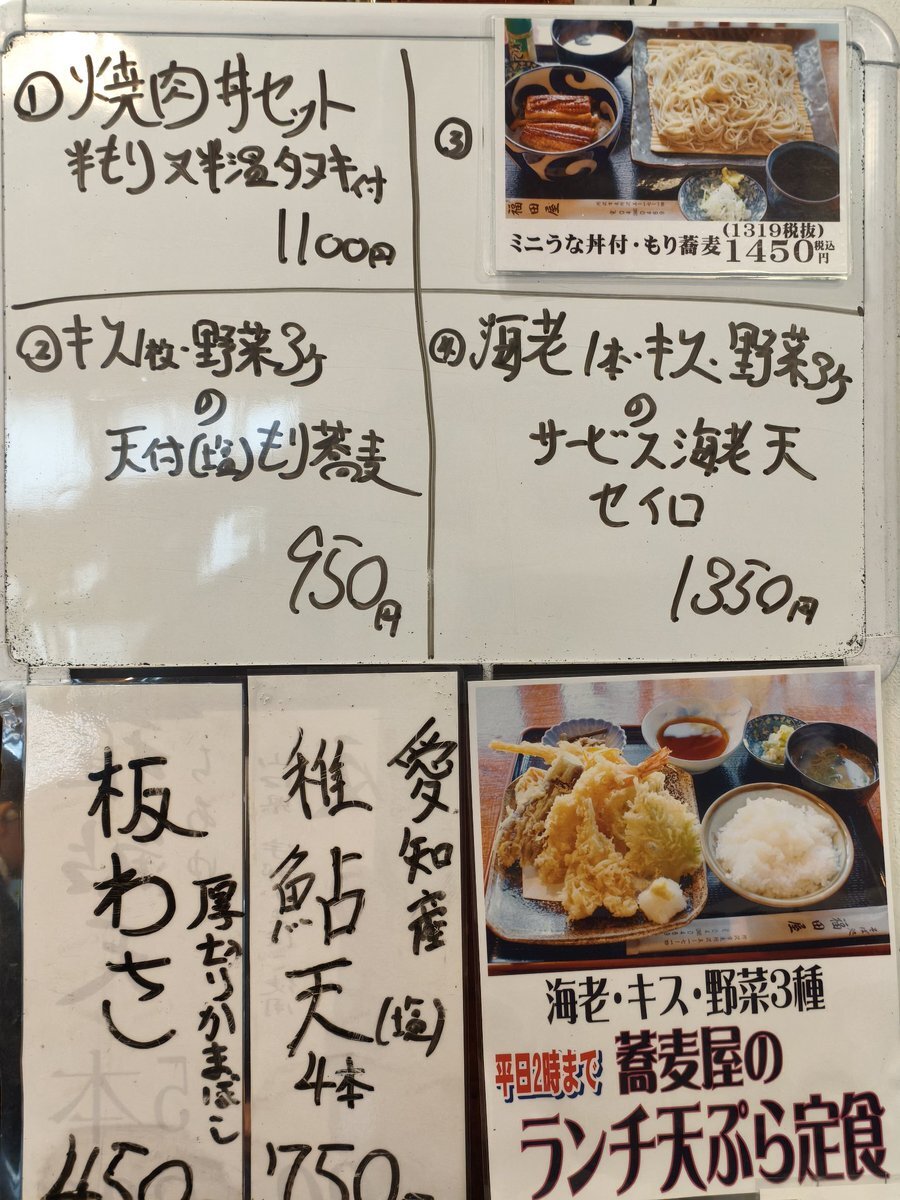 ① 焼肉丼セット
半もり又半温タヌキ付
1100円
② キス1枚・野菜3ケ
の
天付(塩)もり蕎麦
950円
③
福田屋
ミニうな丼付・もり蕎麦
(1319税抜)
1450税込円
④ 海老1本・キス・野菜3ケ
の
サービス海老天
セイロ
1350円
板わさ
厚なりかまぼこ
450
愛知産
稚鮎天
(塩)
4本
750
福田屋
海老・キス・野菜3種
平日2時まで
蕎麦屋の
ランチ天ぷら定食